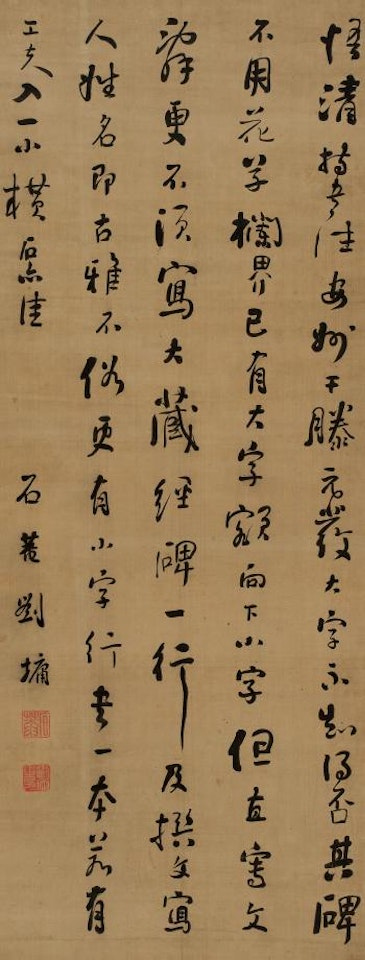 悟清持書往安州干滕元發大字不知得否其碑
不用花草欄界已有大字額向下小字但直寫文
辭更不須寫大藏經碑一行及撰文寫
人姓名即古雅不俗更有小字行書一本若有
工夫入一小橫石亦佳
石菴劉墉